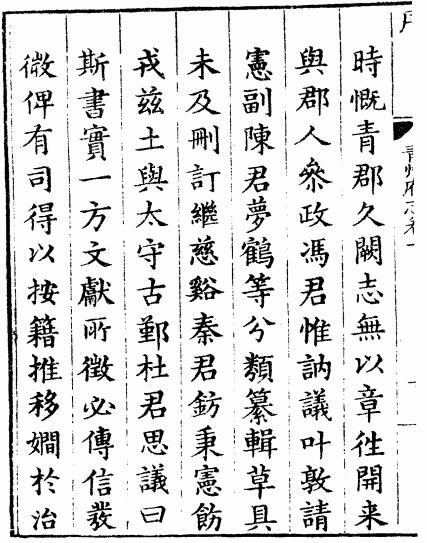 青州府志卷一
時慨青郡久闕志無以章徃開来
與郡人叅政馮君惟訥議叶敦請
憲副陳君夢鶴等分類纂輯草具
未及刪訂繼慈谿秦君鈁秉憲飭
戎兹土與太守古鄞杜君思議曰
斯書實一方文獻所徵必傳信發
微俾有司得以按籍推移嫺於治